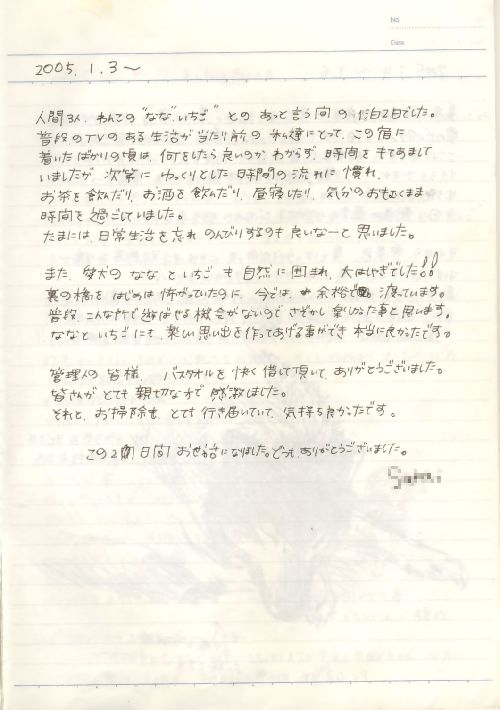 No
Date
2005. 1. 3 〜
人間3人、わんこの"なな""いちご" との あっと言う間 の 1泊2日でした。
普段のTVのある生活が当たり前の 私達にとって、この宿に
着いたばかりの頃は、何をしたら良いのか わからず、時間をもてあまして
いましたが、次第に ゆっくりとした 時間の 流れに 慣れ、
お茶を飲んだり、お酒を飲んだり、昼寝したり、気分のおもむくまま
時間を 過ごしていました。
たまには、日常生活を忘れ のんびりするのも 良いなーと 思いました。
また、愛犬の なな と いちご も 自然に 囲まれ、大はしゃぎでした!!
裏の橋を はじめは 怖がっていたのに、今では、余裕で 渡っています。
普段、こんな所で 遊ばせる 機会がないので さぞかし 楽しかった事と思います。
ななと いちごにも、楽しい 思い出を 作ってあげる事ができ 本当に良かったです。
管理人の 皆様、 バスタオルを 快く 借して頂いて、ありがとうございました。
皆さんが とても 親切な方で 感激しました。
それと、お掃除も、とても 行き届いていて、気持ち良かったです。
この2日間 お世話になりました。どうも、ありがとうございました。